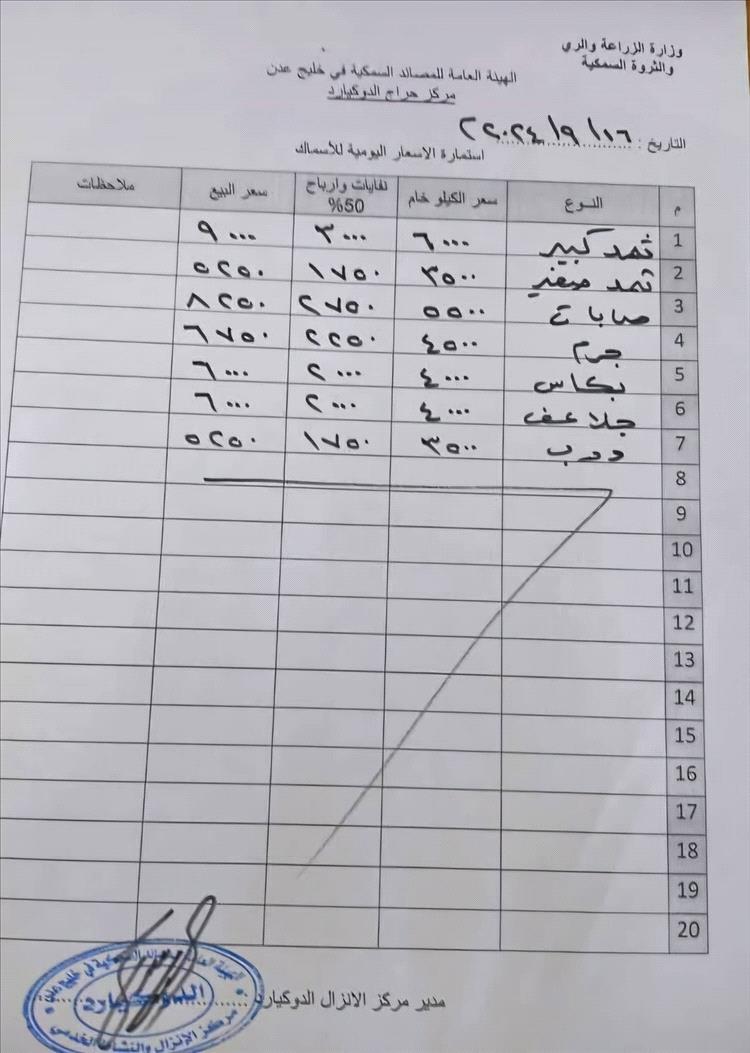 وزارة الزراعة والري
والثروة السمكية
الهيئة العامة للمصائد السمكية في خليج عدن
مركز حراج الدوكيارد
التاريخ : ١٦ / ٩ / ٢٠٢٤
استمارة الاسعار اليومية للأسماك
م النوع سعر الكيلو خام نفايات وارباح 50% سعر البيع ملاحظات
1 ثمد كبير ٦٠٠٠ ٣٠٠٠ ٩٠٠٠
2 ثمد صغير ٣٥٠٠ ١٧٥٠ ٥٢٥٠
3 ٥٥٠٠ ٢٧٥٠ ٨٢٥٠
4 جرم ٤٥٠٠ ٢٢٥٠ ٦٧٥٠
5 بكاس ٤٠٠٠ ٢٠٠٠ ٦٠٠٠
6 جلاعف ٤٠٠٠ ٢٠٠٠ ٦٠٠٠
7 ٣٥٠٠ ١٧٥٠ ٥٢٥٠
8
9
10
11
12
13
14
15
16
17
18
19
20
مدير مركز الانزال الدوكيارد :
الهيئة العامة للمصائد السمكية في خليج عدن
الدوكيارد
مركز الإنزال والنشاط الخدمي